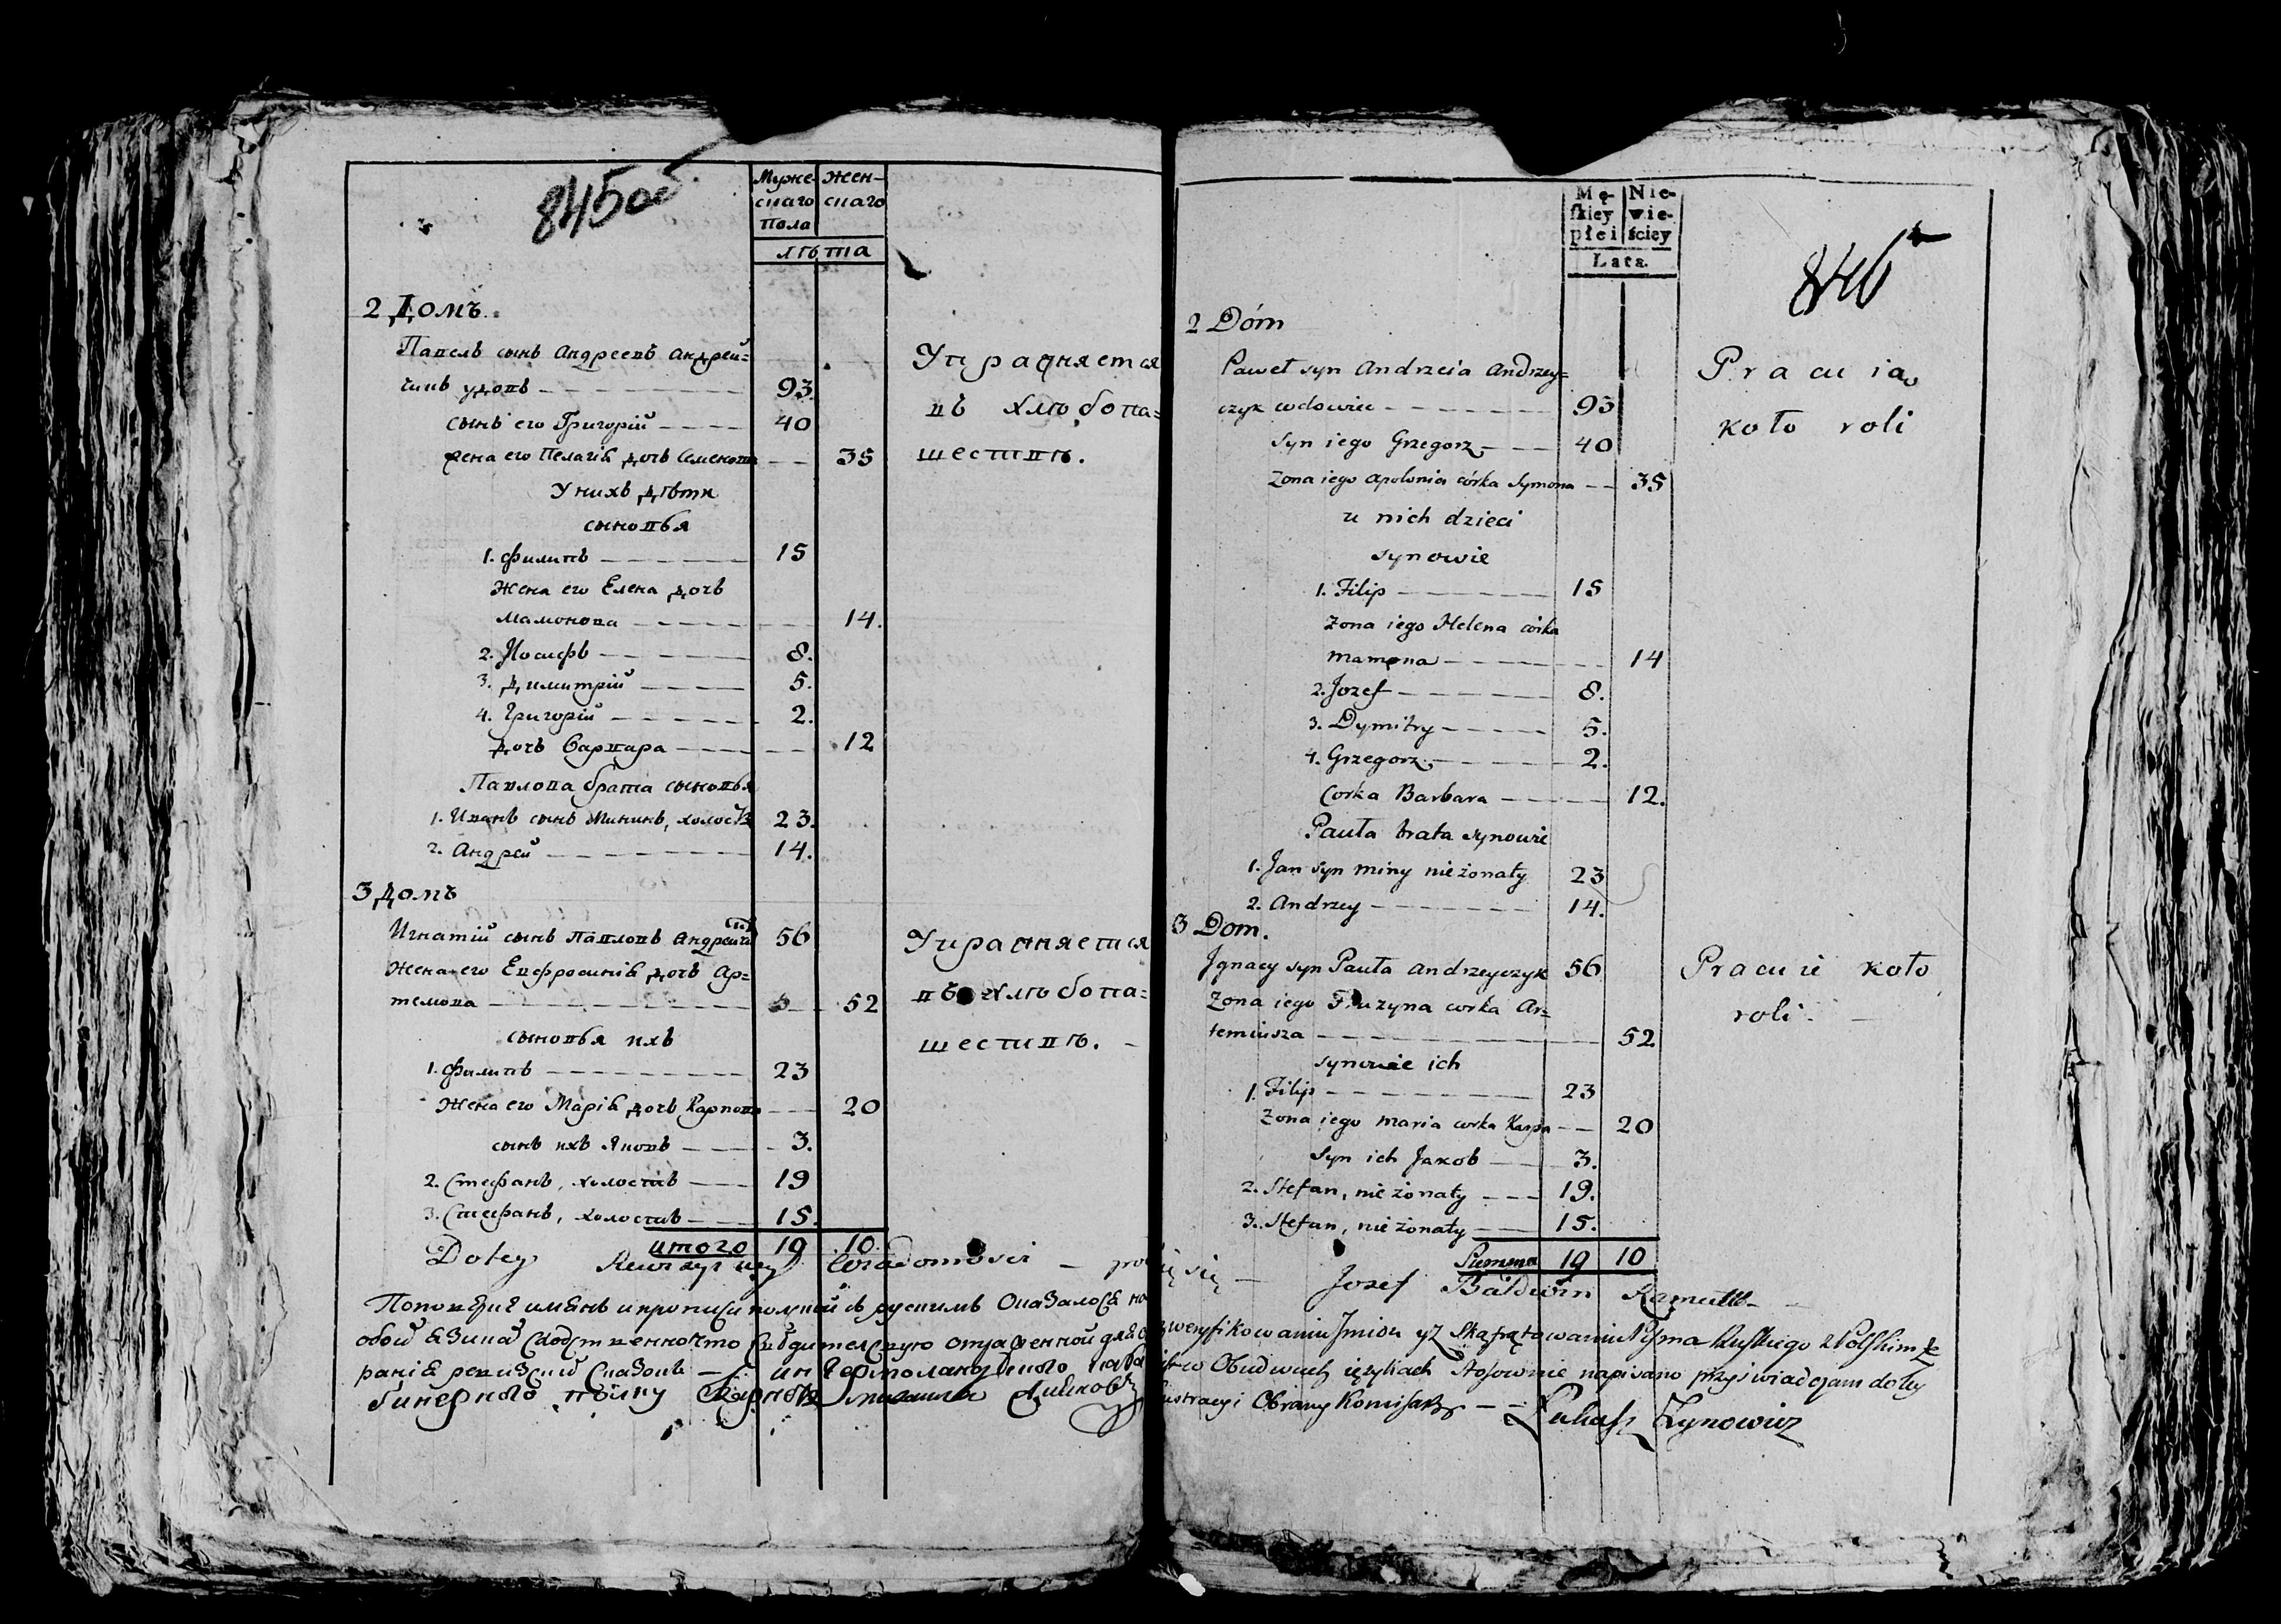 845об.
Муже-
скаго
Пола
Жен-
скаго
лѣта
2 Домъ.
Павелъ сынъ Андреевъ Андрей=
чикъ удовъ 93.
сынъ его Григорій 40
жена его Пелагія дочь Семенова 35
У нихъ дѣти
сыновья
1. Филипъ 15
Жена его Елена дочь
Мамонова 14.
2. Іосифъ 8.
3. Димитрій 5.
4. Григорій 2.
дочь Варвара 12
Павлова брата сыновья
1. Иванъ сынъ Мининъ, холостъ 23.
2. Андрей 14.
Упражняется
въ хлѣбопа=
шествѣ.
3 домъ
Игнатій сынъ Павловъ Андрейчикъ 56
Жена его Евфросинія дочь Ар=
темова 52
сыновья ихъ
1. Филипъ 23
Жена его Марія дочь Карпова 20
сынъ ихъ Яковъ 3.
2. Стефанъ, холостъ 19
3. Стефанъ, холостъ 15.
итого 19 10.
Упражняется
въ хлѣбопа=
шествѣ.
Do tey Rewizyiney Wiadomosci
По повѣрке имянъ и прописи полской съ рускимъ оказалося на
обой языкахъ сходственно что
ранія ревизскихъ сказокъ
846
Mę-
skiey
płci
Nie-
wie-
ściey
Lata.
2 Dóm
Paweł syn Andrzeia Andrzey=
czyk wdowiec 93
Syn iego Grzegorz 40
Zona iego Apolonia córka Symona 35
u nich dzieci
synowie
1. Filip 15
Zona iego Helena córka
Mamona 14
2. Jozef 8.
3. Dymitry 5.
4. Grzegorz 2.
Corka Barbara 12.
Pauła brata synowie
1. Jan syn Miny nieżonaty 23
2. Andrzey 14.
Pracuią
koło roli
3 Dom.
Jgnacy syn Pauła Andrzeyczyk 56
Zona iego Fruzyna corka Ar=
temiusza 52
synowie ich
1. Filip 23
Zona iego Maria corka Karpa 20
Syn ich Jakob 3.
2. Stefan, nieżonaty 19.
3. Stefan, nieżonaty 15.
Summa 19 10
Pracuie koło
roli.
Jozef Bałdwin Ramułt
zweryfikowaniu Jmion yz Skąfrątowaniu Pisma Ruskiego z Polskim że
w Obudwuch ięzykach stosownie napisano przyświadczam do tey
lustracyi Obrany Komisarz
Łukasz Zynowicz